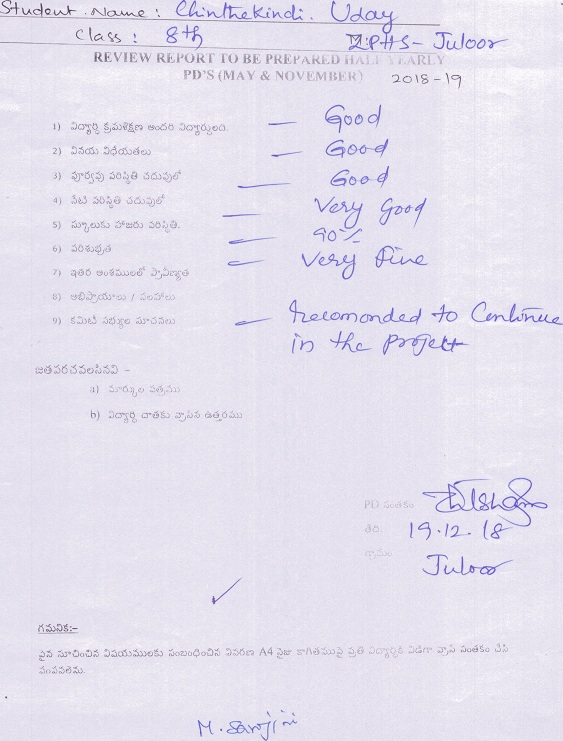 Student Name : Chinthekindi. Uday
Class : 8th ZPHS - Juloor
REVIEW REPORT TO BE PREPARED HALF YEARLY
PD'S (MAY & NOVEMBER) 2018-19
1) విద్యార్థి క్రమశిక్షణ అందరి విద్యార్థులది. — Good
2) వినయ విధేయతలు — Good
3) పూర్వపు పరిస్థితి చదువులో — Good
4) నేటి పరిస్థితి చదువులో — Very Good
5) స్కూలుకు హాజరు పరిస్థితి. — 90%
6) పరిశుభ్రత — Very fine
7) ఇతర అంశములలో ప్రావీణ్యత
8) అభిప్రాయాలు / సలహాలు
9) కమిటి సభ్యుల సూచనలు — Recomonded to Continue
in the project
జతపరచవలసినవి -
a) మార్కుల పత్రము
b) విద్యార్థి దాతకు వ్రాసిన ఉత్తరము
PD సంతకం
తేది. 19.12.18
గ్రామం Juloor
గమనిక:-
పైన సూచించిన విషయములకు సంబంధించిన వివరణ A4 సైజు కాగితముపై ప్రతి విద్యార్థికి విడిగా వ్రాసి సంతకం చేసి
పంపవలెను.
M. Sarojini